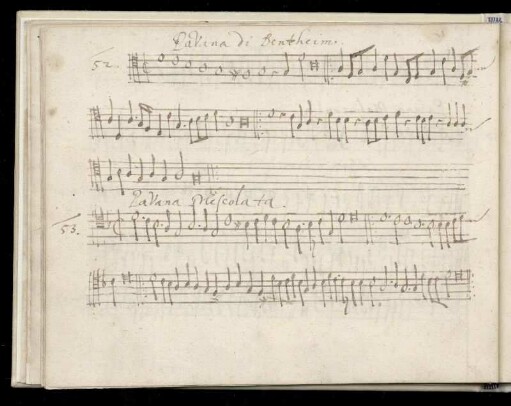 Pavana di Bentheim.
52.
Pavana Mescolata.
53.